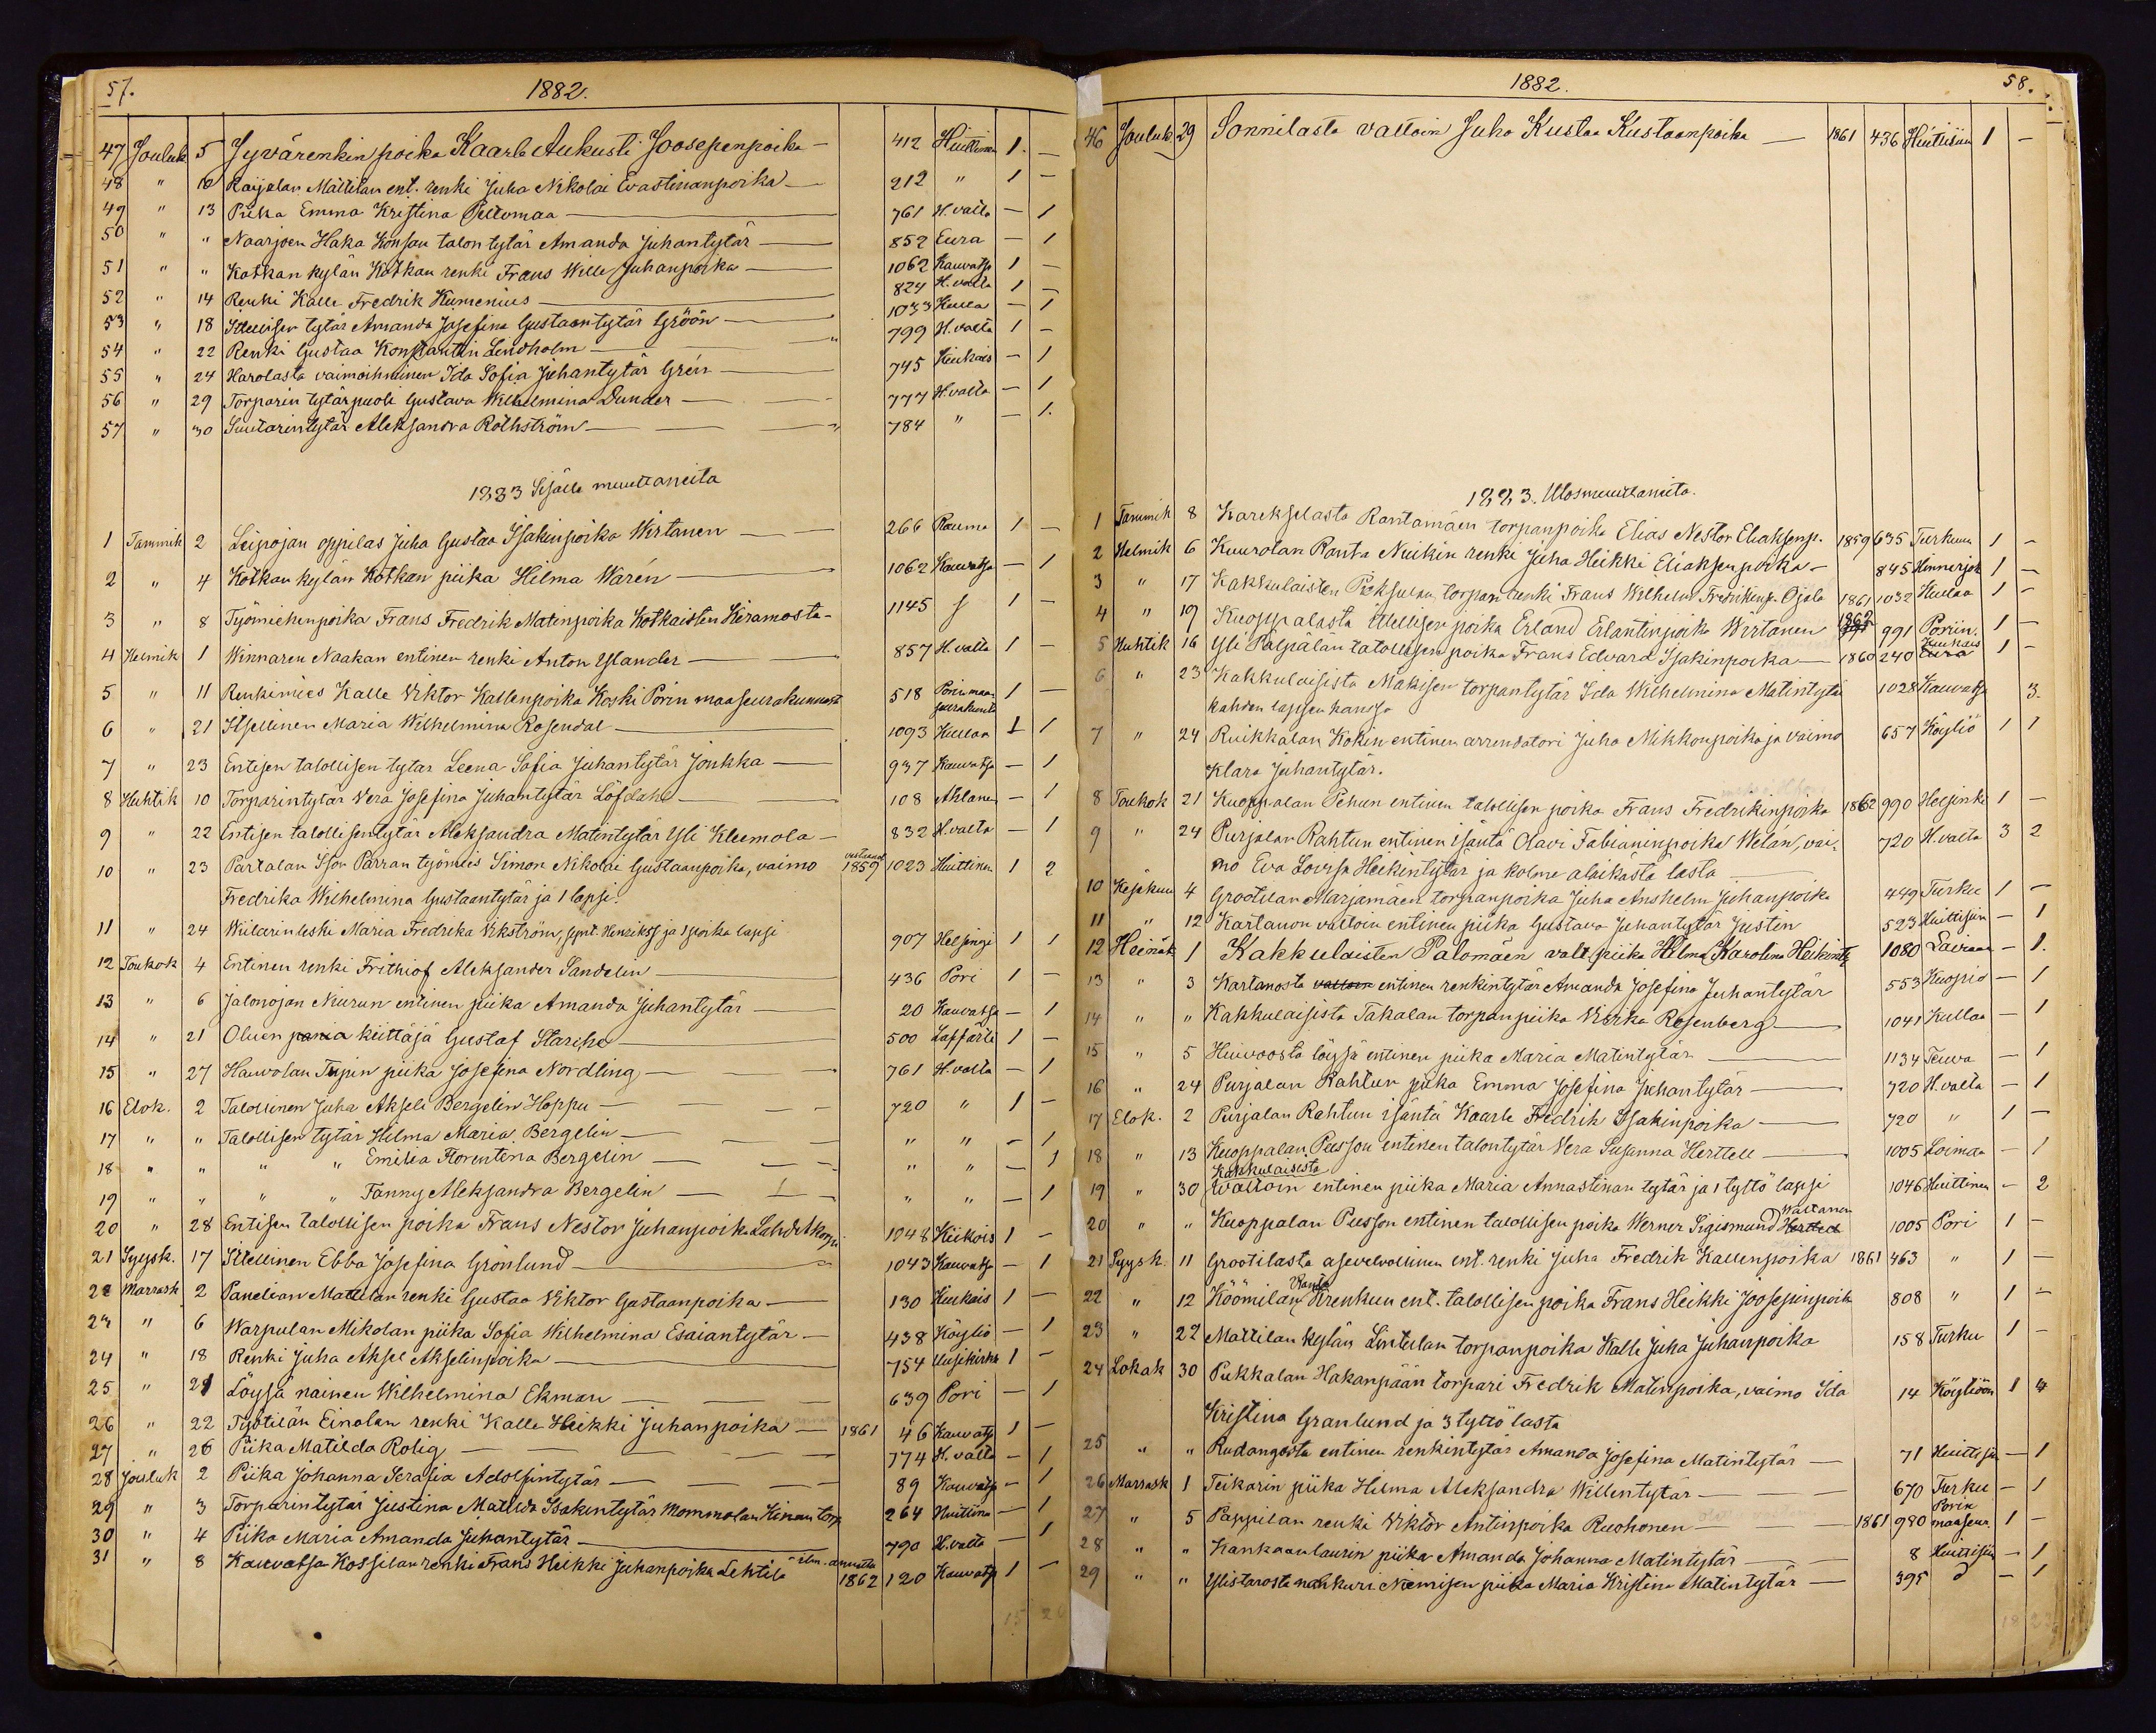 57.
1882.
47 Jouluk 5 Jyvärenkin poika Kaarle Aukusti Joosepenpoika — 412 Huittinen 1. —
48 " 10 Raijalan Mattilan ent. renki Juha Nikolai Evastinanpoika — 212 " 1 —
49 " 13 Piika Emma Kristina Peltomaa — 761 H. valta — 1
50 " " Naarjoen Haka Konsan talon tytär Amanda Juhantytär — 852 Eura — 1
51 " " Kotkan kylän Kotkan renki Frans Wille Juhanpoika — 1062 Kauvatsa 1 —
52 " 14 Renki Kalle Fredrik Kumenius — 824 H. valta 1 —
53 " 18 Itsellisen tytär Amanda Josefina Gustaantytär Gröön — 1033 Kullaa — 1
54 " 22 Renki Gustaa Konstantin Lindholm — " 799 H. valta 1 —
55 " 24 Harolasta vaimoihminen Ida Sofia Juhantytär Grén — 745 Kiukais — 1
56 " 29 Torparin tytärpuoli Gustava Wilhelmina Dunder — 777 H. valta — 1
57 " 30 Suutarintytär Aleksandra Rothström — " 784 " — 1.
1883 Sisälle muuttaneita
1 Tammik 2 Leipojan oppilas Juha Gustaa Isakinpoika Wirtanen — 266 Rauma 1 —
2 " 4 Kotkan kylän Kotkan piika Hilma Warén — 1062 Kauvatsa — 1
3 " 8 Työmiehenpoika Frans Fredrik Matinpoika Kotkaisten Kiramosta — 1145 1 —
4 Helmik 1 Winnaren Naakan entinen renki Anton Ylander — 857 H. valta 1 —
5 " 11 Renkimies Kalle Viktor Kallenpoika Koski Porin maaseurakunnast 518 Porin maaseurakunta 1 —
6 " 21 Itsellinen Maria Wilhelmina Rosendal — 1093 Kullaa 1 1
7 " 23 Entisen talollisen tytar Leena Sofia Juhantytär Jonkka — 937 Kauvatsa — 1
8 Huhtik 10 Torparintytär Vera Josefina Juhantytär Löfdahl — 108 Ahlanen — 1
9 " 22 Entisen talollisentytär Aleksandra Matintytär Yli Kleemola — 832 H. valta — 1
10 " 23 Partalan Ison Parran työmies Simon Nikolai Gustaanpoika, vaimo 1859 1023 Huittinen 1 2
Fredrika Wilhelmina Gustaantytär ja 1 lapsi.
11 " 24 Wiilarin leski Maria Fredrika Wikström, synt. Henrikss ja 1 poika lapsi 907 Helsingi 1 1
12 Toukok 4 Entinen renki Frithiof Aleksander Sandelin — 436 Pori 1 —
13 " 6 Jalonojan Niurun entinen piika Amanda Juhantytär — 20 Kauvatsa — 1
14 " 21 Oluen pania keittäjä Gustaf Starcke — 500 Lappärti 1 —
15 " 27 Hauvolan Tupin piika Josefina Nordling — 761 H. valta — 1
16 Elok. 2 Talollinen Juha Akseli Bergelin Hoppu — 720 " 1 —
17 " " Talollisen tytär Hilma Maria Bergelin — " " — 1
18 " " " " Emilia Florentina Bergelin — " " — 1
19 " " " " Fanny Aleksandra Bergelin — " " — 1
20 " 28 Entisen talollisen poika Frans Nestor Juhanpoika Lahdetkorpi 1048 Kiikois 1 —
21 Syysk. 17 Itsellinen Ebba Josefina Grönlund — 1043 Kauvatsa — 1
22 Marrask 2 Panelian Mattilan renki Gustaa Viktor Gustaanpoika — 130 Kiukais 1 —
23 " 6 Warpulan Mikolan piika Sofia Wilhelmina Esaiantytär — 438 Köyliö — 1
24 " 18 Renki Juha Aksel Akselinpoika — 754 Uusikirkk 1 —
25 " 21 Löysä nainen Wilhelmina Ekman — 639 Pori — 1
26 " 22 Työtilän Einolan renki Kalle Heikki Juhanpoika — 1861 46 Kauvatsa 1 —
27 " 26 Piika Matilda Rolig — 774 H. valta — 1
28 Jouluk 2 Piika Johanna Serafia Adolfintytär — 89 Kauvatsa — 1
29 " 3 Torparintytär Justina Matilda Isakintytär Mommolan Hinan torp 264 Huittina — 1
30 " 4 Piika Maria Amanda Juhantytär — 790 H. valta — 1
31 " 8 Kauvatsa Kossilan renki Frans Heikki Juhanpoika Lehtilä 1862 120 Kauvatsa 1 —
15 26
1882.
58.
46 Jouluk. 29 Sonnilasta valtoin Juho Kustaa Kustaanpoika — 1861 436 Huittisiin 1 —
1883. Ulosmuuttaneita.
1 Tammik 8 Karekselasta Rantamäen torpanpoika Elias Nestor Eliaksenp. 1859 635 Turkuun 1 —
2 Helmik 6 Kuurolan Ranta Nuikin renki Juha Heikki Eliaksenpoika — 845 Hinnerjok 1 —
3 " 17 Kakkulaisten Pieksulan torpan renki Frans Wilhelm Fredrikinp. Ojala 1861 1032 Kullaa 1 —
4 " 19 Kuoppalasta itsellisen poika Erland Erlantinpoika Wirtanen 1862 991 Poriin. 1 —
5 Huhtik 16 Yli Pälpälän talollisen poika Frans Edvard Isakinpoika — 1860 240 Kiukais Eura 1 —
6 " 23 Kakkulaisista Mäkisen torpantytär Ida Wilhelmina Matintytär 1028 Kauvatsa 3.
kahden lapsen kanssa
7 " 24 Ruikkalan Kokin entinen arrendatori Juha Mikkonpoika ja vaimo 657 Köyliö 1 1
Klara Juhantytär.
8 Toukok 21 Kuoppalan Pehun entinen talollisen poika Frans Fredrikinpoika 1862 990 Helsinki 1 —
9 " 24 Purjalan Rahtun entinen isäntä Olavi Fabianinpoika Welán, vai- 720 H. valta 3 2
mo Eva Lovisa Heikintytär ja kolme alaikästä lasta
10 Kesäkuu 4 Grootilan Marjamäen torpanpoika Juha Anshelm Juhanpoika 449 Turku 1 —
11 " 12 Kartanon valtoin entinen piika Gustava Juhantytär Justin 523 Huittisiin — 1
12 Heinäk 1 Kakkulaisten Palomäen valt. piika Hilma Karolina Heikint. 1080 — 1.
13 " 3 Kartanosta valtoin entinen renkintytär Amanda Josefina Juhantytär 553 Kuopio — 1
14 " " Kakkulaisista Takalan torpan piika Verka Rosenberg — 1041 Kullaa — 1
15 " 5 Huivoosta löysä entinen piika Maria Matintytär — 1134 Teuva — 1
16 " 24 Purjalan Rahtun piika Emma Josefina Juhantytär — 720 H. valta — 1
17 Elok. 2 Purjalan Rahtun isäntä Kaarle Fredrik Isakinpoika — 720 " 1 —
18 " 13 Kuoppalan Pusson entinen talontytär Vera Susanna Herttell — 1005 Loimaa — 1
Kakkulaisista
19 " 30 Valtoin entinen piika Maria Annastinan tytär ja 1 tyttö lapsi 1046 Huittinen — 2
Valtanen
20 " " Kuoppalan Pusson entinen talollisen poika Werner Sigismund Herttell 1005 Pori 1 —
21 Syysk. 11 Grootilasta asevelvollinen ent. renki Juha Fredrik Kallenpoika 1861 463 " 1 —
Ranta
22 " 12 Köömilän Krenkun ent. talollisen poika Frans Heikki Joosepinpoik 808 " 1 —
23 " 22 Mattilan kylän Lintulan torpanpoika Kalle Juha Juhanpoika 158 Turku 1 —
24 Lokak 30 Pukkalan Hakanpään torpari Fredrik Matinpoika, vaimo Ida 14 Köyliöön 1 4
Kristina Granlund ja 3 tyttö lasta
25 " " Rudangosta entinen renkintytär Amanda Josefina Matintytär — 71 Huittisiin — 1
26 Marrask 1 Teikarin piika Hilma Aleksandra Willentytär — 670 Turku — 1
27 " 5 Pappilan renki Viktor Antinpoika Ruohonen — 1861 980 Porin maaseur. 1 —
28 " " Kankaanlaurin piika Amanda Johanna Matintytär — 8 Huittisiin — 1
29 " " Ylistarosta nahkuri Niemisen piika Maria Kristina Matintytär — 395 — 1
18 23